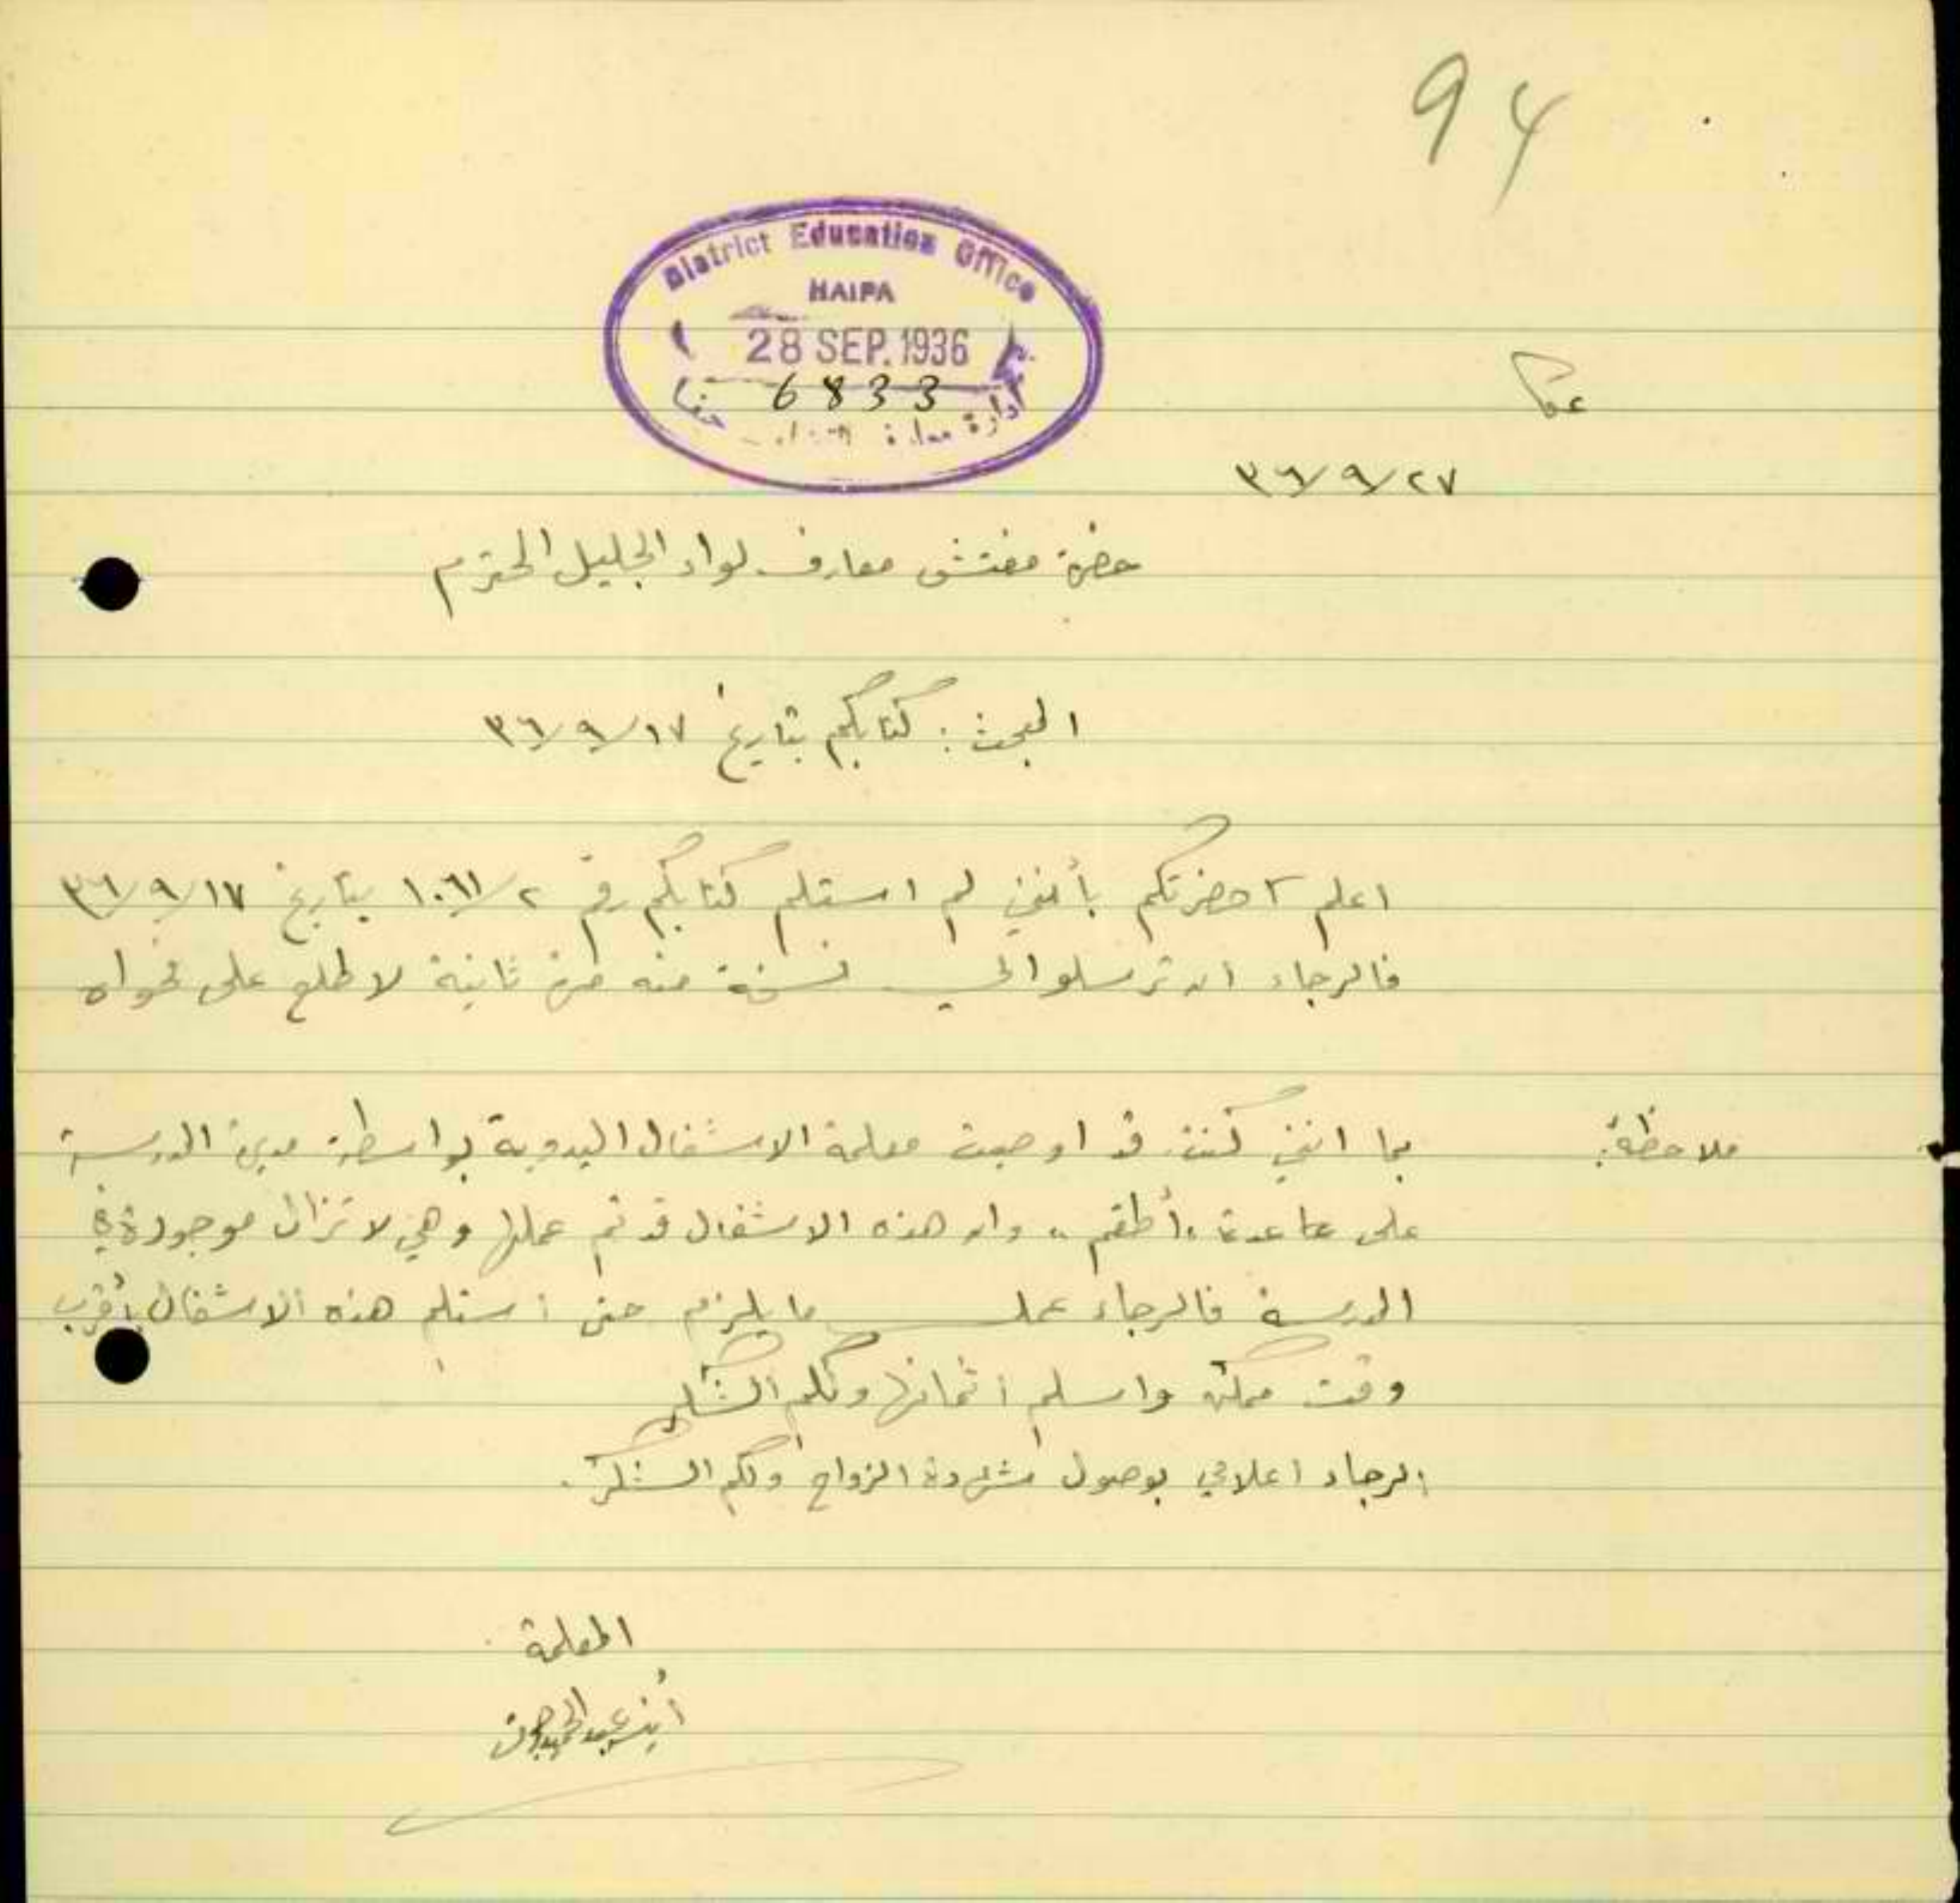 94
District Education Office
HAIFA
28 SEP. 1936
6833
ادارة حيفا
عكا
٢٧/٩/٣٦
حضرة مفتش معارف لواء الجليل المحترم
المبحث : كتابكم بتاريخ ١٧/٩/٣٦
اعلم حضرتكم بأنني لم استلم كتابكم رقم ١٠٦١/٢ بتاريخ ١٧/٩/٣٦
فالرجاء ان ترسلوا لي نسخة منه مرة ثانية لاطلع على فحواه
ملاحظة: بما انني كنت قد اوصيت معلمة الاشغال اليدوية بواسطة مديرة المدرسة
على "أطقم" وان هذه الاشغال قد تم عملها وهي لا تزال موجودة في
المدرسة فالرجاء عمل ما يلزم حتى استلم هذه الاشغال بأقرب
وقت ممكن واسلم اثمانها ولكم الشكر
الرجاء اعلامي بوصول شهادة الزواج ولكم الشكر.
المعلمة
عبد الحميد